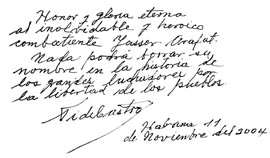 Honor y gloria eterna
al inolvidable y heroico
combatiente Yasser Arafat.
Nada podrá borrar su
nombre en la historia de
los grandes luchadores por
la libertad de los pueblos.
Fidel Castro
Habana 11
de Noviembre del 2004